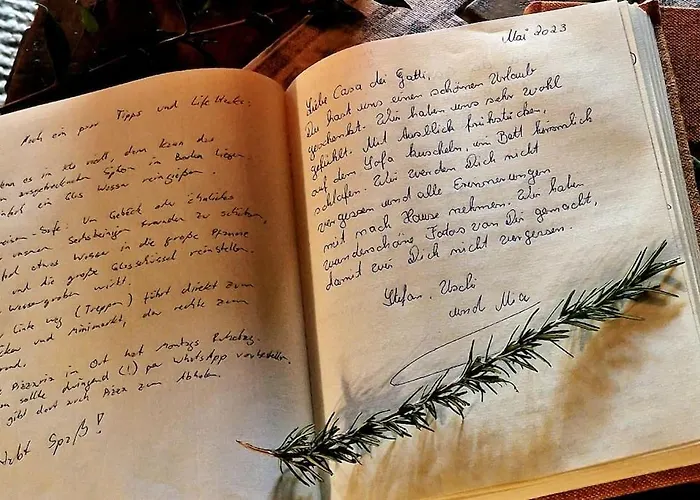 Noch ein paar Tipps und Life Hacks:
es in KG riecht, dann kann der
ausgetrocknete Siphon im Boden liegen.
ein Glas Wasser reingießen.
Safe: Um Gebäck oder ähnliches
unseren Sechsbeinigen Freunden zu schützen,
etwas Wasser in die große Pfanne
und die große Glasschüssel reinstellen.
Wassergraben wirkt.
Linke Weg (Treppen) führt direkt zum
und Minimarkt, der rechte zum
Pizzeria im Ort hat Montags Ruhetag.
sollte dringend (!) per WhatsApp vorbestellen.
gibt dort auch Pizza zum Abholen.
Habt Spaß!
Mai 2023
Liebe Casa dei Gatti,
Du hast uns einen schönen Urlaub
geschenkt. Wir haben uns sehr wohl
gefühlt. Mit Ausblick frühstücken,
auf dem Sofa kuscheln, im Bett himmlisch
schlafen. Wir werden Dich nicht
vergessen und alle Erinnerungen
mit nach Hause nehmen. Wir haben
wunderschöne Fotos von Dir gemacht,
damit wir Dich nicht vergessen.
Stefan, Uschi
und Mia